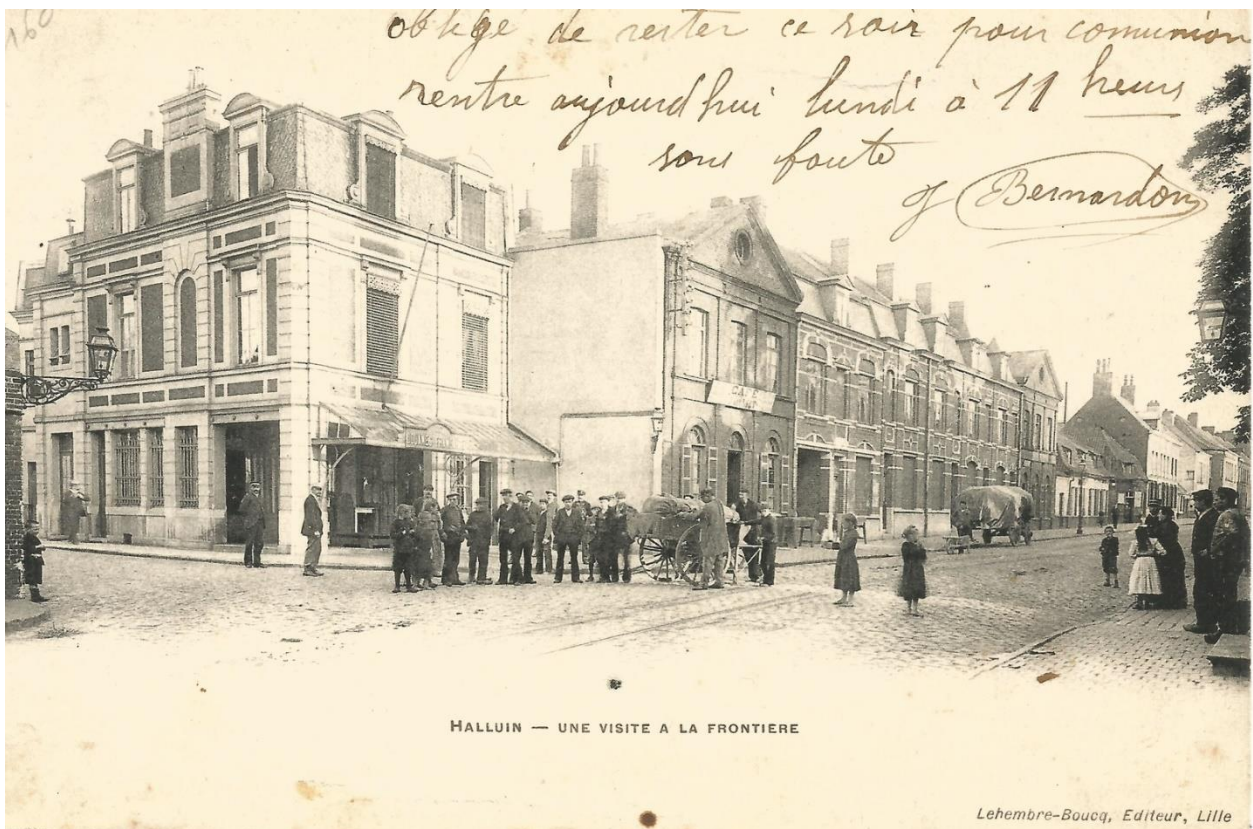 160
oblige de rester ce soir pour comunion
rentre aujourd'hui lundi à 11 heurs
sans faute
J Bernardon
HALLUIN — UNE VISITE A LA FRONTIERE
Lehembre-Boucq, Editeur, Lille